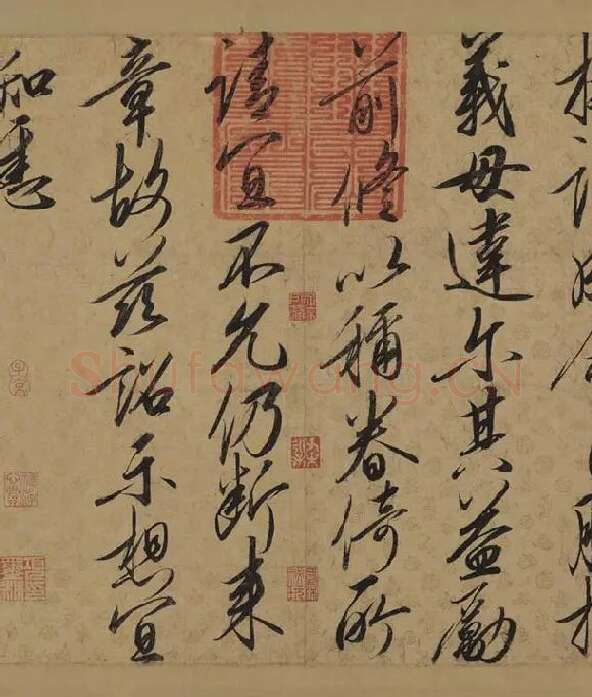 義毋違尔其益勵
前脩以稱眷倚所
請宜不允仍斷來
章故茲詔示想宜
知悉
Shufawang.CN